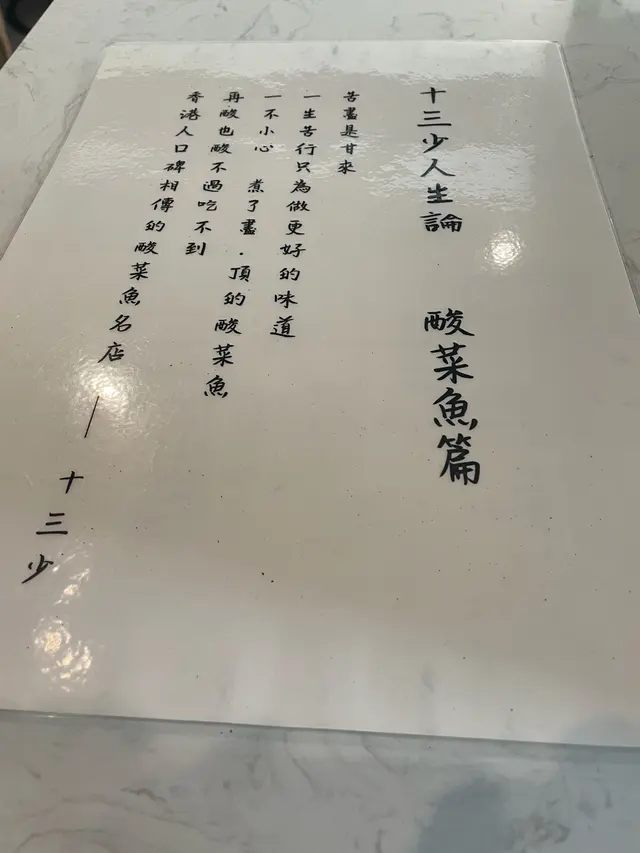 十三少人生論 酸菜魚篇
苦盡是甘來
一生苦行只為做更好的味道
一不小心 煮了盡．頂的酸菜魚
再酸也酸不過吃不到
香港人口碑相傳的酸菜魚名店 — 十三少